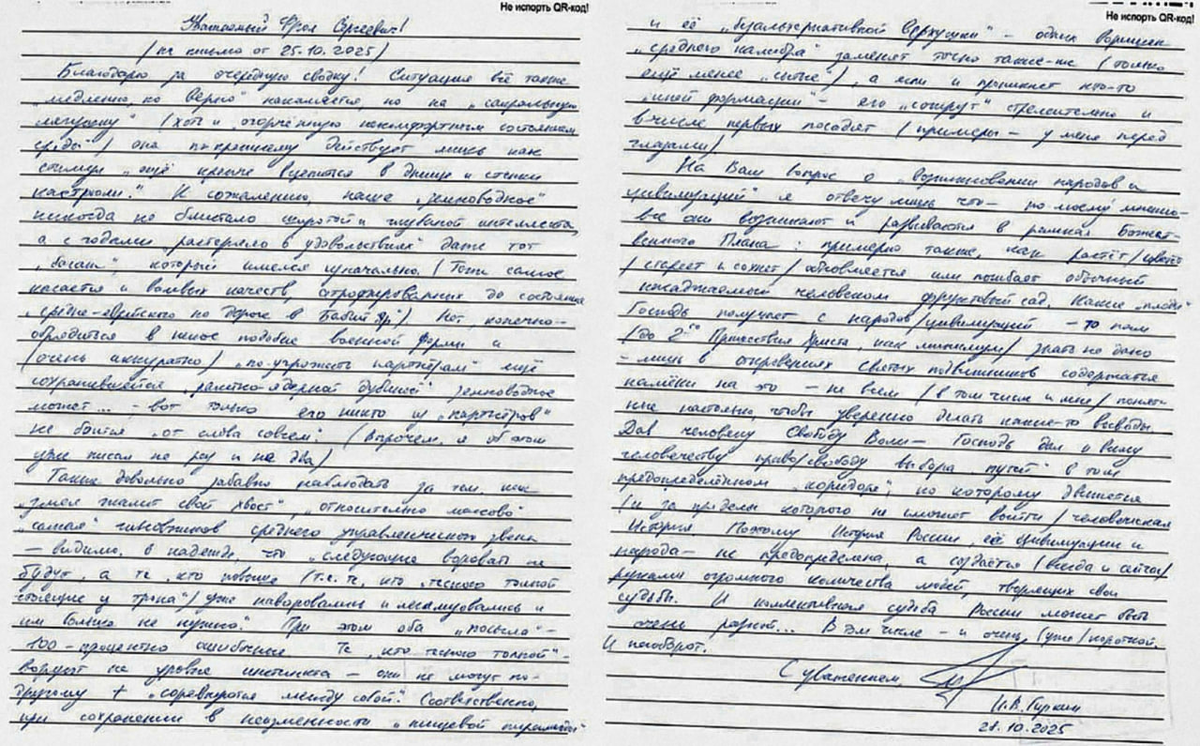 Не испорть QR-код!
Уважаемый Фрол Сергеевич!
(на письмо от 25.10.2025)
Благодарю за очередную сводку! Ситуация всё также
"медленно, но верно" накаляется, но на "сакральную
лягушку" (хоть и огорчённую некомфортным состоянием
среды) она по-прежнему действует лишь как
стимул "ещё крепче вцепиться в днище и стенки
кастрюли". К сожалению, наше "земноводное"
никогда не блистало широтой и глубиной интеллекта,
а с годами "растеряло в удовольствиях" даже тот
"багаж", который имелся изначально. (Тоже самое
касается и волевых качеств, атрофированных до состояния
"средне-еврейского по дороге в Бабий Яр"). Нет конечно-
обрядиться в некое подобие военной формы и
(очень аккуратно) "по-угрожать партнёрам" ещё
сохранившейся "ракетно-ядерной дубиной" земноводное
может... - вот только его никто из "партнёров"
не боится "от слова совсем". (Впрочем, я об этом
уже писал не раз и не два)
Также довольно забавно наблюдать за тем, как
"змея жалит свой хвост", "относительно массово
сажая" чиновников среднего управленческого звена
- видимо, в надежде, что "следующие воровать не
будут, а те, кто повыше (т.е. те, кто "тесною толпой
стоящие у трона") уже наворовались и легализовались и
им больше не нужно". При этом оба "посыла" -
100-процентно ошибочные. Те, "кто тесною толпой" -
воруют на уровне инстинкта - они не могут по-
другому + "соревнуются между собой". Соответственно,
при сохранении в неизменности "пищевой пирамиды"
Не испорть QR-код!
и её "безальтернативной верхушки" - одних
"среднего калибра" заменят точно такие-же (только
ещё менее "сытые"), а если и проникнет кто-то
"иной формации" - его "сожрут" стремительно и
в числе первых посадят (примеры - у меня перед
глазами)
На Ваш вопрос о "возникновении народов и
цивилизаций" я отвечу лишь что - по моему мнению -
все они возникают и развиваются в рамках Божест-
венного Плана: примерно также, как растёт/цветёт
/стареет и сохнет/обновляется или погибает обычный
насаждаемый человеком фруктовый сад. Какие "плоды"
Господь получает с народов/цивилизаций - то нам
(до 2го Пришествия Христа, как минимум) знать не дано
- лишь в откровениях Святых подвижников содержатся
намёки на это - не всем (в том числе и мне) понят-
ные настолько, чтобы уверенно делать какие-то выводы.
Дав человеку Свободу Воли - Господь дал и всему
человечеству право/свободу выбора "пути" в том
предопределённом "коридоре", по которому движется
(и за пределы которого не сможет выйти) человеческая
История. Поэтому История России, её цивилизации и
народа - не предопределена, а создаётся (всегда и сейчас)
руками огромного количества людей, творящих свои
судьбы. И коллективная судьба России может быть
очень разной... В том числе - и очень (уже) короткой.
И наоборот.
С уважением,
И.В. Гиркин
28.10.2025